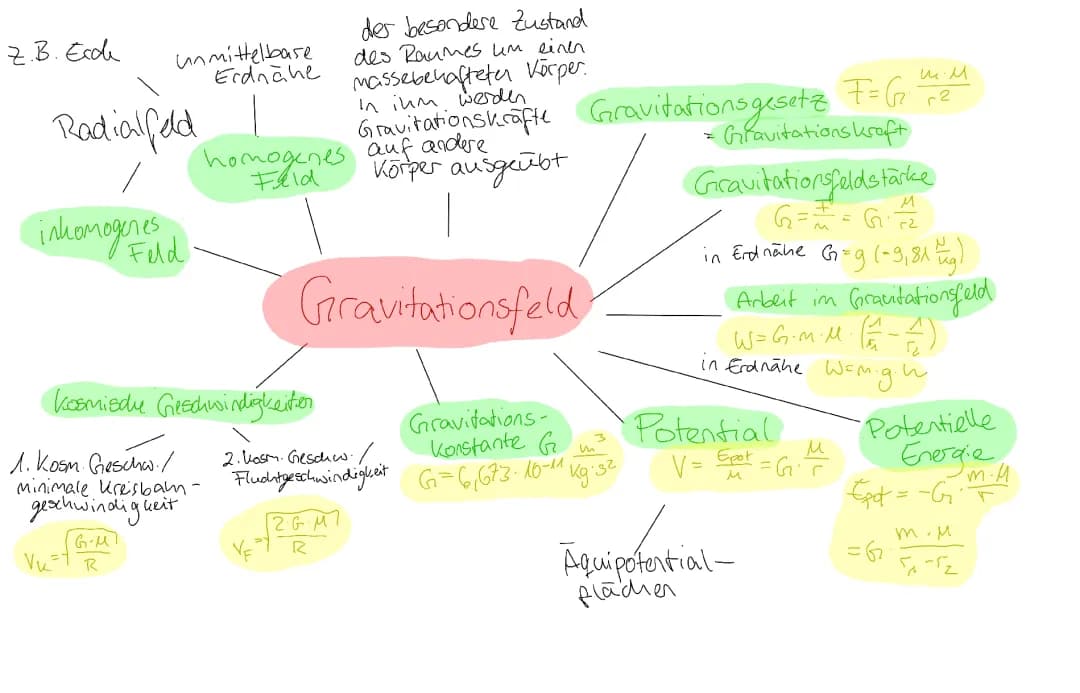 z.B. Erde
Radialfeld
inhomogenes
Feld
unmittelbare
Erdnähe
homogenes
Feld
der besondere Zustand
des Raumes um einen
massebehafteten Körper.
In ihm werden
Gravitationskräfte
auf andere
Körper ausgeübt
Gravitationsgesetz F=G·m·M/r²
= Gravitationskraft
Gravitationsfeldstärke
G=F/m = G·M/r²
in Erdnähe G=g (-9,81 N/kg)
Arbeit im Gravitationsfeld
W=G·m·M·(1/r₁ - 1/r₂)
in Erdnähe W=m·g·h
Gravitationsfeld
Kosmische Geschwindigkeiten
1. Kosm. Geschw./
minimale Kreisbahn-
geschwindigkeit
Vₖ=√(G·M/R)
2. Kosm. Geschw./
Fluchtgeschwindigkeit
V_F=√(2·G·M/R)
Gravitations-
konstante G
G=6,673·10⁻¹¹ m³/kg·s²
Potential
V= Epot/M = G·M/r
Äquipotential-
flächen
Potentielle
Energie
Epot = -G·m·M/r
=G·m·M/r₁-r₂